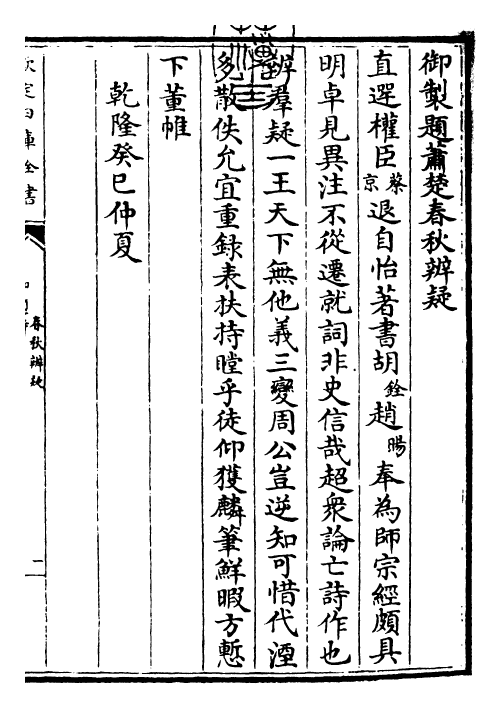 御製題蕭楚春秋辨疑
直選權臣蔡京退自怡著書胡銓趙暘奉為師宗經頗具
明卓見異注不從遷就詞非史信哉超衆論亡詩作也
辨羣疑一王天下無他義三變周公豈逆知可惜代湮
多散佚允宜重錄表扶持瞠乎徒仰獲麟筆鮮暇方慙
下董帷
乾隆癸巳仲夏
欽定四庫全書
春秋辨疑
二